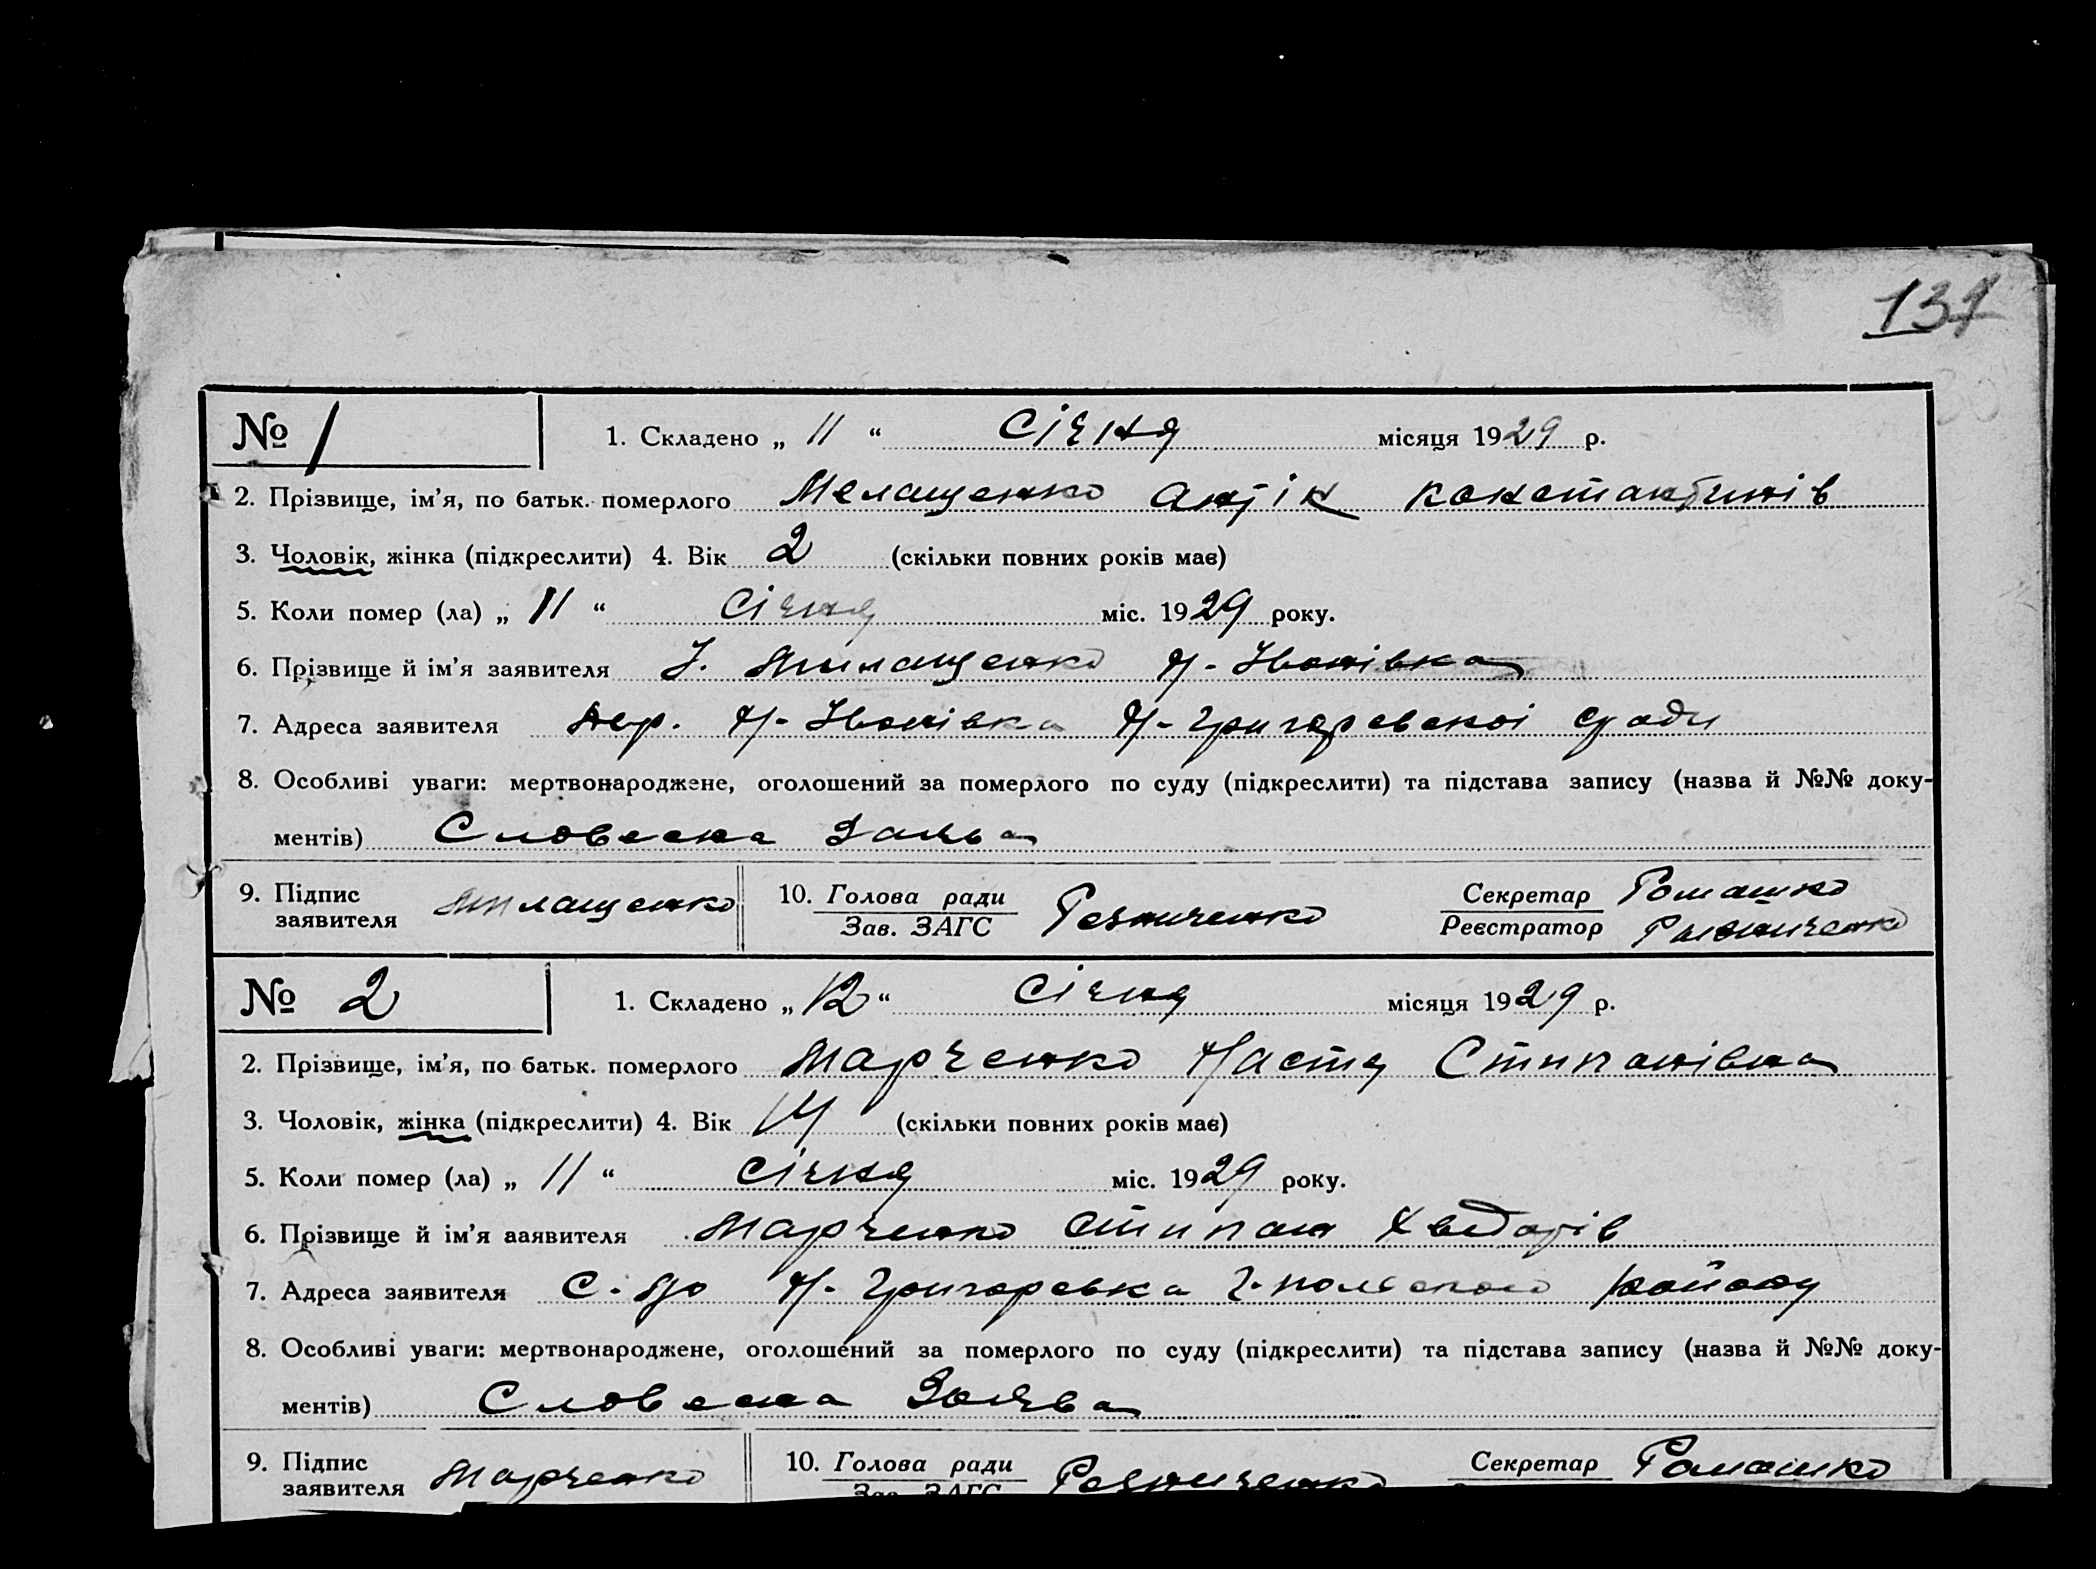 137
№ 1 1. Складено „ 11 “ Січня місяця 1929 р.
2. Прізвище, ім’я, по батьк. померлого Мелащенко Антін Константинів
3. Чоловік, жінка (підкреслити) 4. Вік 2 (скільки повних років має)
5. Коли помер (ла) „ 11 “ Січня міс. 1929 року.
6. Прізвище й ім’я заявителя Милащенко Н-Іванівка
7. Адреса заявителя Н-Іванівка Н-Григоревскоі с/ради
8. Особливі уваги: мертвонароджене, оголошений за померлого по суду (підкреслити) та підстава запису (назва й №№ доку-
ментів) Словесна Заява
9. Підпис 10. Голова ради Резниченко Секретар Ромашко
заявителя Милащенко Зав. ЗАГС Реєстратор
№ 2 1. Складено „ 12 “ Січня місяця 1929 р.
2. Прізвище, ім’я, по батьк. померлого Марченко Настя Стипанівна
3. Чоловік, жінка (підкреслити) 4. Вік 14 (скільки повних років має)
5. Коли помер (ла) „ 11 “ Січня міс. 1929 року.
6. Прізвище й ім’я заявителя Марченко Стипан Хведорів
7. Адреса заявителя Н-Григоревка Г-польського району
8. Особливі уваги: мертвонароджене, оголошений за померлого по суду (підкреслити) та підстава запису (назва й №№ доку-
ментів) Словесна Заява
9. Підпис 10. Голова ради Резниченко Секретар Ромашко
заявителя Марченко Зав. ЗАГС